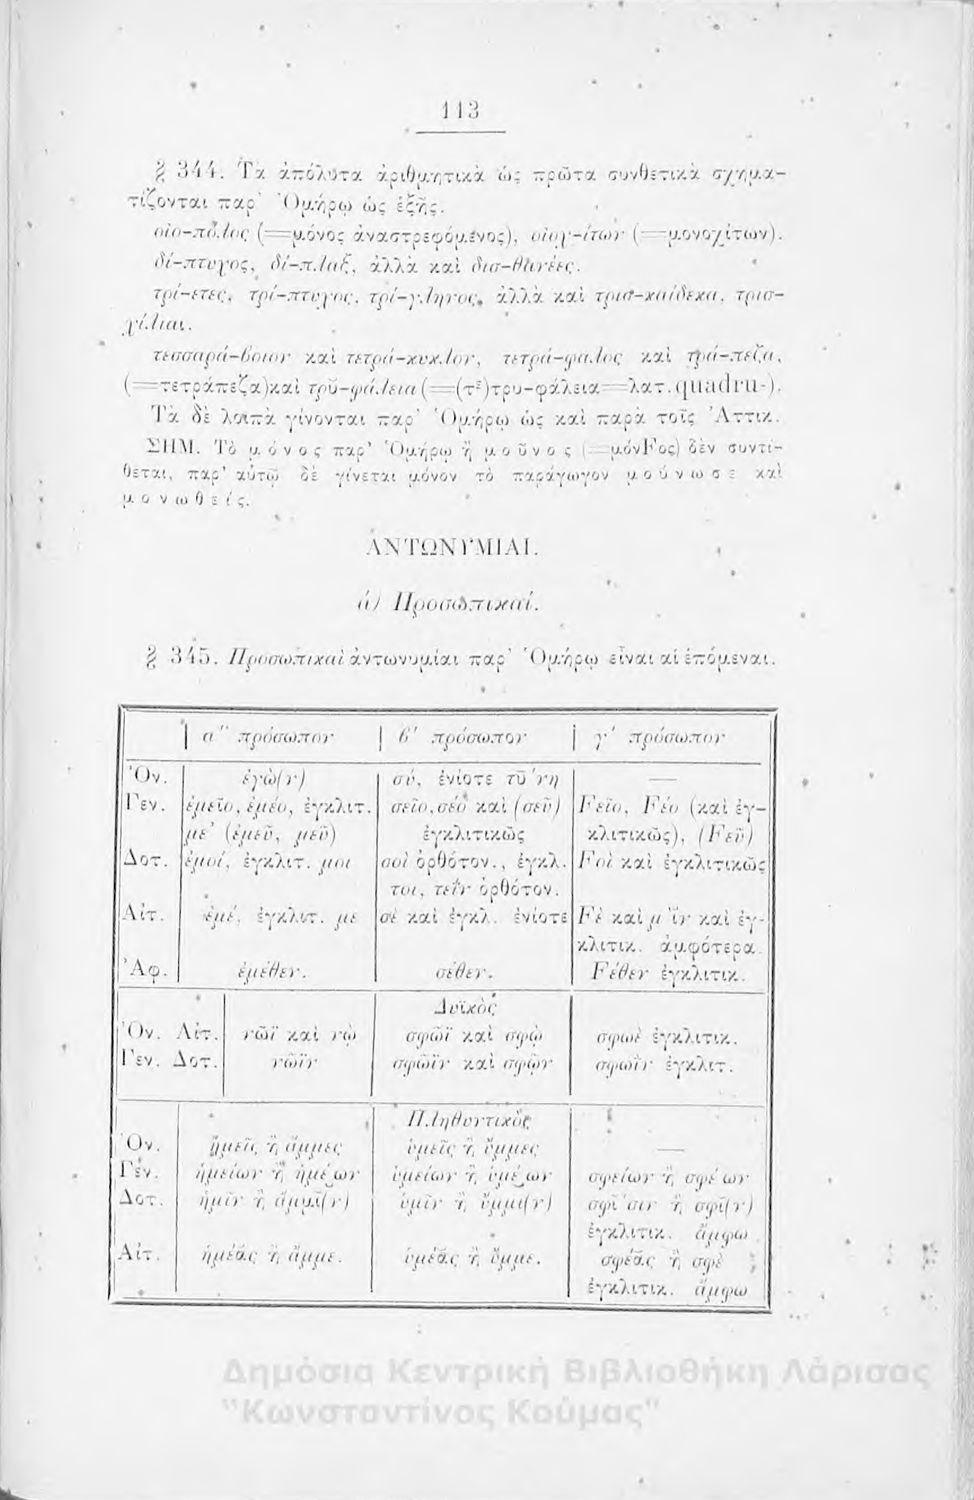 113
§ 344. Τὰ ἀπόλυτα ἀριθμητικὰ ὡς πρῶτα συνθετικὰ σχημα-
τίζονται παρ' Ὁμήρῳ ὡς ἑξῆς.
οἰο-πόλος (=μόνος ἀναστρεφόμενος), οἰοχ-ίτων (=μονοχίτων).
δί-πτυχος, δί-πλαξ, ἀλλὰ καὶ δισ-θανέες.
τρί-ετες, τρί-πτυχος, τρί-γληνος, ἀλλὰ καὶ τρισ-καίδεκα, τρισ-
χίλιαι.
τεσσαρά-βοιον καὶ τετρά-κυκλον, τετρά-φαλος καὶ τρά-πεζα,
(=τετράπεζα) καὶ τρῠ-φάλεια (=(τε)τρυ-φάλεια=λατ. quadru-).
Τὰ δὲ λοιπὰ γίνονται παρ' Ὁμήρῳ ὡς καὶ παρὰ τοῖς Ἀττικ.
ΣΗΜ. Τὸ μόνος παρ' Ὁμήρῳ ἢ μοῦνος (=μόνFος) δὲν συντί-
θεται, παρ' αὐτῷ δὲ γίνεται μόνον τὸ παράγωγον μούνωσε καὶ
μονωθείς.
ΑΝΤΩΝΥΜΙΑΙ.
ά) Προσωπικαί.
§ 345. Προσωπικαὶ ἀντωνυμίαι παρ' Ὁμήρῳ εἶναι αἱ ἑπόμεναι.
α" πρόσωπον β' πρόσωπον γ' πρόσωπον
Ὀν. ἐγώ(ν) σύ, ἐνίοτε τῡ́νη —
Γεν. ἐμεῖο, ἐμέο, ἐγκλιτ. σεῖο, σέο καὶ (σεῦ) Fεῖο, Fέο (καὶ ἐγ-
με' (ἐμεῦ, μεῦ) ἐγκλιτικῶς κλιτικῶς), (Fεῦ)
Δοτ. ἐμοί, ἐγκλιτ. μοι σοὶ ὀρθότον., ἐγκλ. Fοὶ καὶ ἐγκλιτικῶς
τοι, τεῒν ὀρθότον.
Αἰτ. ἐμέ, ἐγκλιτ. με σέ καὶ ἐγκλ. ἐνίοτε Fὲ καὶ μὶν καὶ ἐγ-
κλιτικ. ἀμφότερα.
Ἀφ. ἐμέθεν. σέθεν. Fέθεν ἐγκλιτικ.
Δυϊκὸς
Ὀν. Αἰτ. νῶϊ καὶ νὼ σφῶϊ καὶ σφὼ σφωὲ ἐγκλιτικ.
Γεν. Δοτ. νῶϊν σφῶϊν καὶ σφῷν σφωῒν ἐγκλιτ.
Πληθυντικὸς
Ὀν. ἡμεῖς ἢ ἄμμες ὑμεῖς ἢ ὔμμες —
Γεν. ἡμείων ἢ ἡμέων ὑμείων ἢ ὑμέων σφείων ἢ σφέων
Δοτ. ἡμῖν ἢ ἄμμῐ(ν) ὑμῖν ἢ ὔμμι(ν) σφίσιν ἢ σφῐ(ν)
ἐγκλιτικ. ἄμφω
Αἰτ. ἡμέᾱς ἢ ἄμμε. ὑμέᾱς ἢ ὔμμε. σφέᾱς ἢ σφὲ
ἐγκλιτικ. ἄμφω
Δημόσια Κεντρική Βιβλιοθήκη Λάρισας
"Κωνσταντίνος Κούμας"